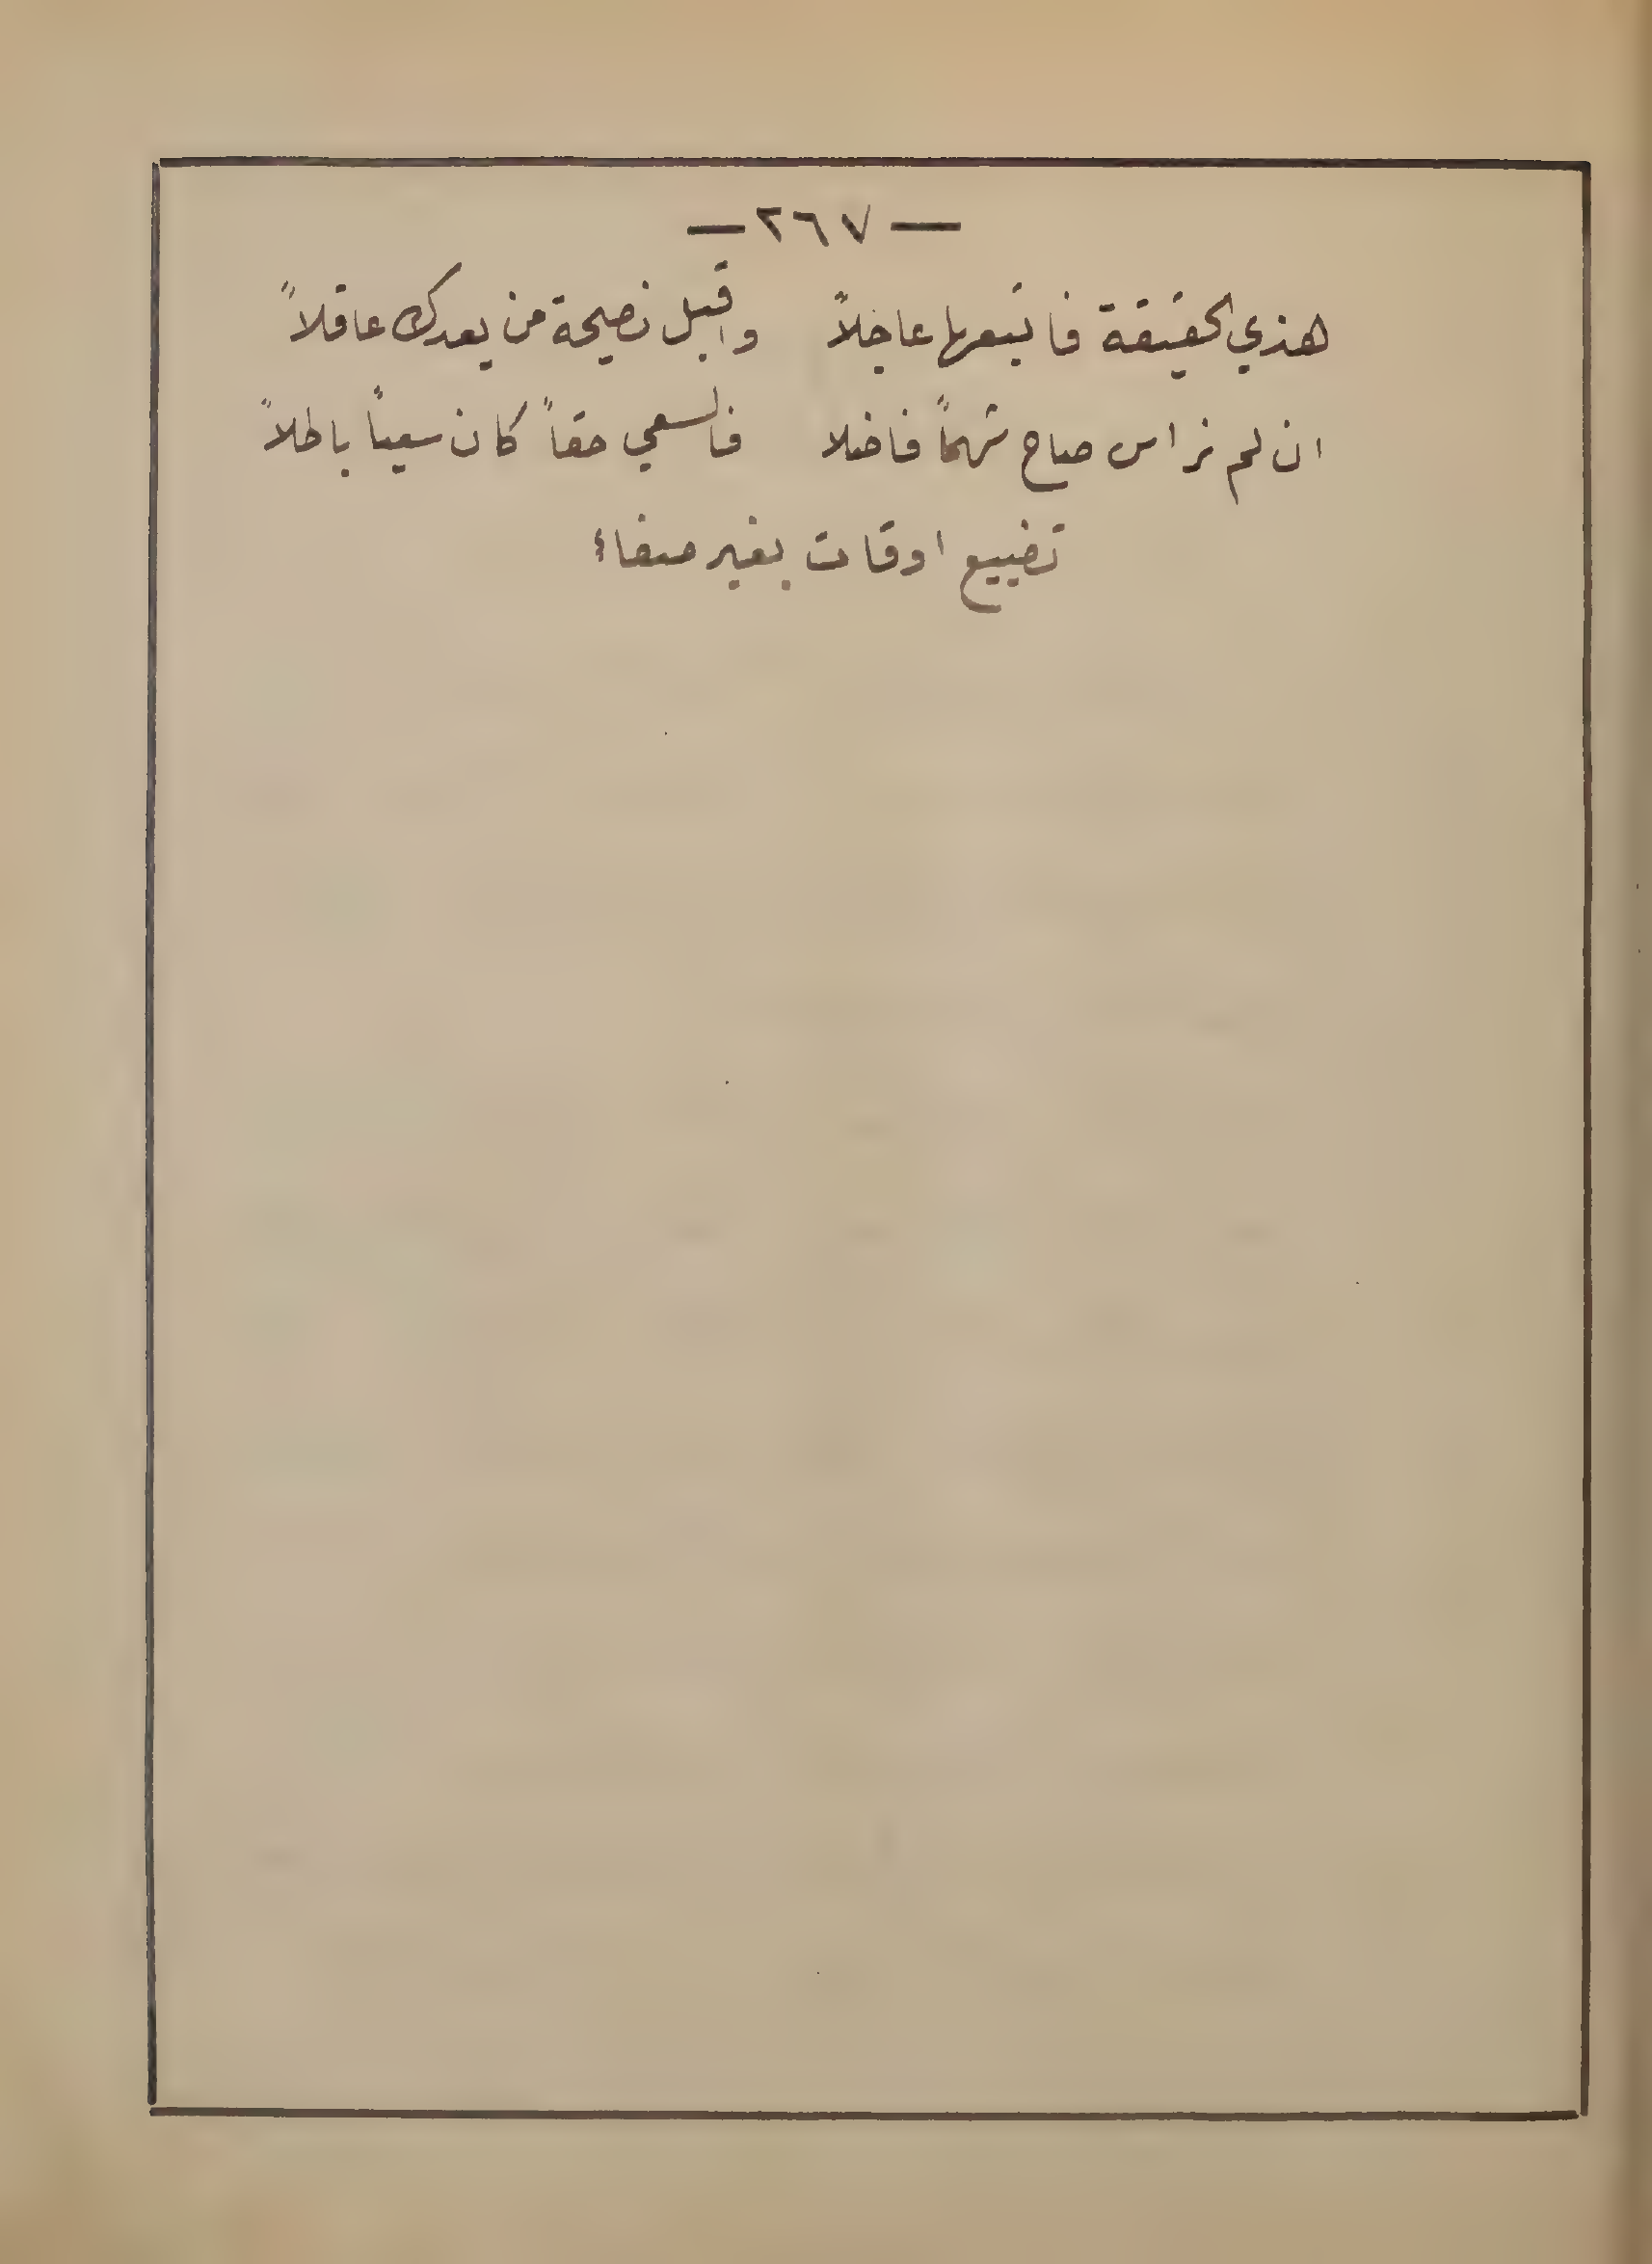 — ٢٦٧ —
هذي الحقيقة فاتبعها عاجلاً واقبل نصيحة من يعدك عاقلاً
ان لم نر اس صباح شهماً فاضلا فالسعي حقاً كان سعياً باطلاً
تضييع اوقات بغير صفاء